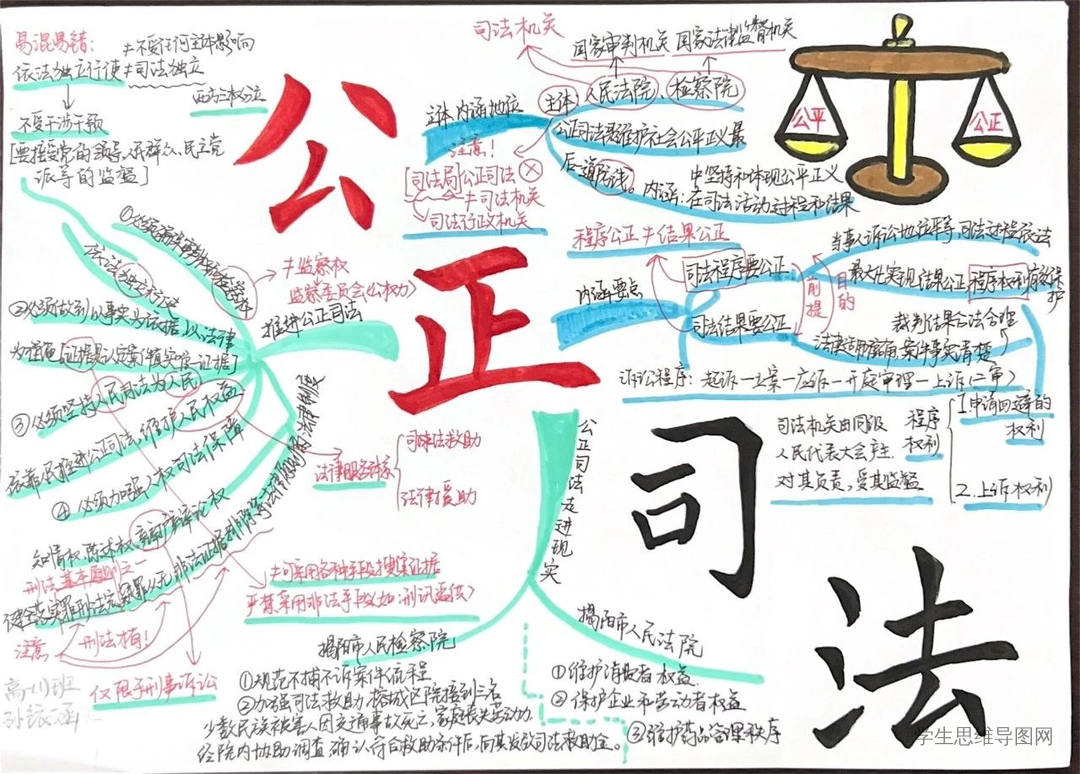 公正司法
易混易错:
≠不受任何主体影响
依法独立行使≠司法独立
西方三权分立
不受干涉干预
[要接受党的领导、人民群众、民主党
派等的监督]
司法机关
国家审判机关 国家法律监督机关
主体 人民法院 检察院
主体内涵地位
公正司法是维护社会公平正义最
后一道防线。
内涵:在司法活动过程和结果
中坚持和体现公平正义
注意!
[司法局公正司法
≠司法机关
司法行政机关
公平
公正
程序公正≠结果公正
内涵要点
司法程序要公正
司法结果要公正
前提
目的
当事人诉讼地位平等、司法过程民法
最大化实现结果公正 程序权利有效保护
裁判结果合法合理
法律适用准确 案件事实清楚
诉讼程序:起诉—立案—应诉—开庭审理—上诉(二审)
司法机关由同级
人民代表大会产生.
对其负责,受其监督
程序
权利
1.申请回避的
权利
2.上诉权利
推进公正司法
依法独立行使
≠监察权
监察委员会(公权力)
②必须做到以事实为依据,以法律
为准绳[证据是认定案件真实唯一证据]
③必须坚持人民司法为人民
依靠人民推进公正司法,维护人民权益
④必须加强人权司法保障
知情权、陈述权、辩护辩论权
刑法基本原则之一
健全落实罪刑法定、疑罪从无、非法证据排除等法律原则的法律制度
法律服务体系
司法救助
法律援助
≠可采用各种手段搜集证据
严禁采用非法手段(如:刑讯逼供)
注意
刑法独有!
仅限于刑事诉讼
公正司法走进现实
揭阳市人民检察院
①规范不捕不诉案件流程
②加强司法救助 榕城区院接到三名
少数民族被害人因交通事故死亡,家庭丧失劳动力.
经院内协助调查确认符合救助条件后,向其发放司法救助金。
揭阳市人民法院
①维护消费者权益
②保护企业和劳动者权益
③维护药品管理秩序
学生思维导图网